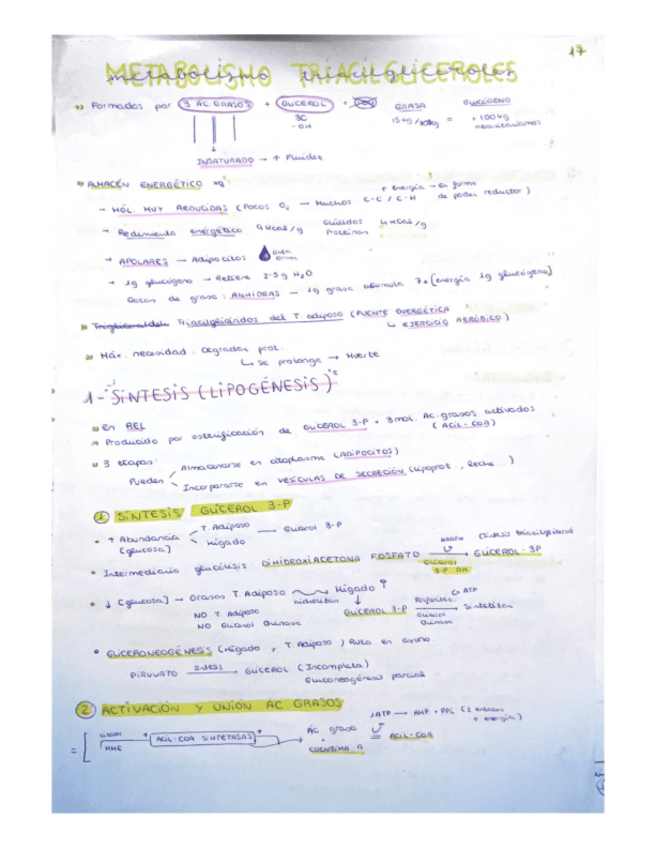 17
METABOLISMO TRIACILGLICEROLES
Formados por 3 AC. GRASOS + GLICEROL +
GRASA GLUCÓGENO
3C
-OH
15 kg / = + 100 kg
INSATURADO → ↑ Fluidez
ALMACÉN ENERGÉTICO xq:
+ energía → en forma de poder reductor)
→ MÓL. MUY REDUCIDAS (Pocos O2 → Muchos C-C / C-H
→ Rendimiento energético 9 kcal/g Glúcidos Proteínas 4 kcal/g
→ APOLARES → Adipocitos
→ 1g glucógeno → Retiene 2'5 g H2O
Gotas de grasa: ANHIDRAS → 1g grasa acumula 7x [energía 1g glucógeno]
Triacilglicéridos del T. adiposo (FUENTE ENERGÉTICA
↳ EJERCICIO AERÓBICO)
Máx. necesidad: Degradar prot.
↳ se prolonga → Muerte
1- SÍNTESIS (LIPOGÉNESIS)
en REL
Producido por esterificación de GLICEROL 3-P + 3 mol. Ac. grasos activados
(ACIL-COA)
3 etapas:
Pueden Almacenarse en citoplasma (ADIPOCITOS)
Incorporarse en VESÍCULAS DE SECRECIÓN (Lipoprot., Leche...)
1 SÍNTESIS GLICEROL 3-P
↑ Abundancia [glucosa] T. Adiposo Hígado → Glicerol 3-P
Intermediario glucólisis: DIHIDROXIACETONA FOSFATO → GLICEROL-3P
NADH (Síntesis triacilglicerol
Glicerol 3-P DH
↓ [glucosa] → Grasas T. Adiposo Hígado
hidrolizan
NO T. Adiposo
NO Glicerol Quinasa
GLICEROL 3-P → Sintetizan
ATP
Glicerol Quinasa
GLICERONEOGÉNESIS (Hígado y T. Adiposo) Ruta en ayuno
PIRUVATO → GLICEROL (Incompleta)
Gluconeogénesis parcial
2 ACTIVACIÓN Y UNIÓN ÁC GRASOS
ATP → AMP + PPi (2 enlaces + energía)
= [ MME ACIL-COA SINTETASAS → Ác graso → ACIL-COA
COENZIMA A